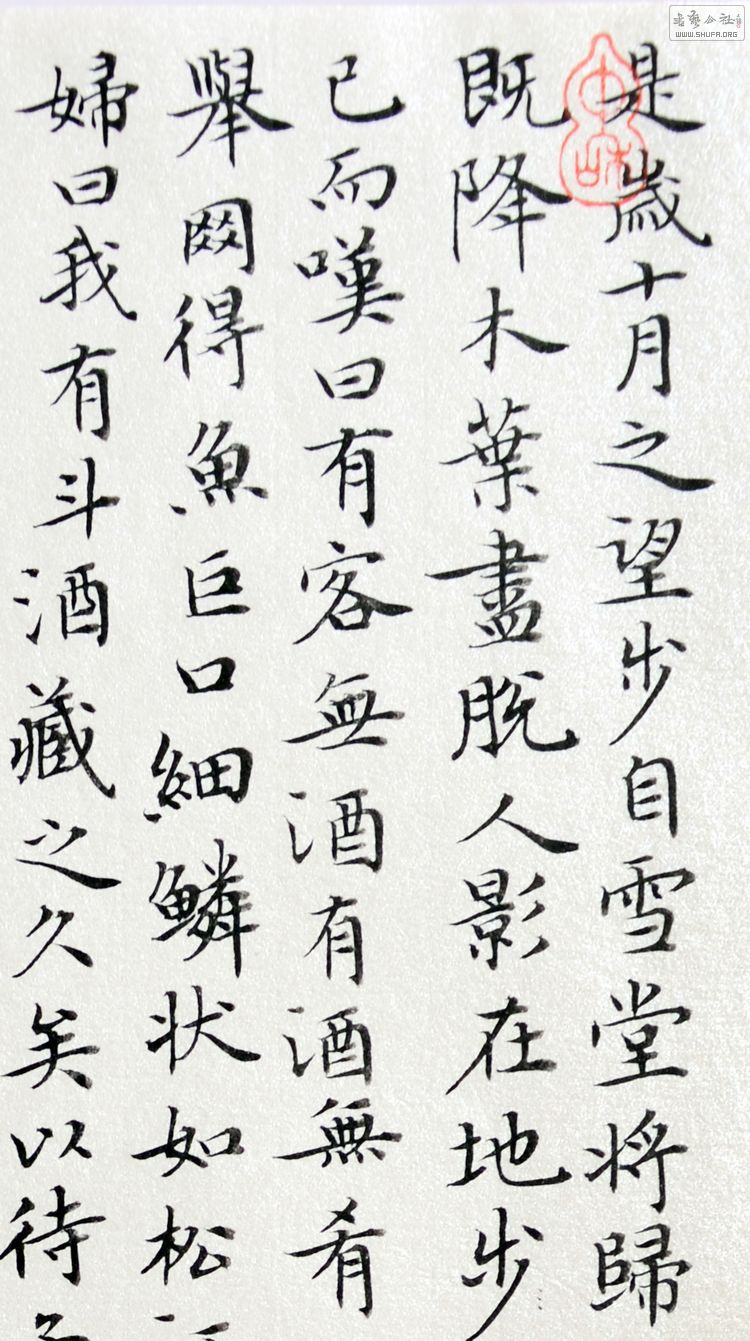 是歲十月之望步自雪堂將歸
既降木葉盡脫人影在地步
已而嘆曰有客無酒有酒無肴
舉網得魚巨口細鱗狀如松
婦曰我有斗酒藏之久矣以待
WWW.SHUFA.ORG